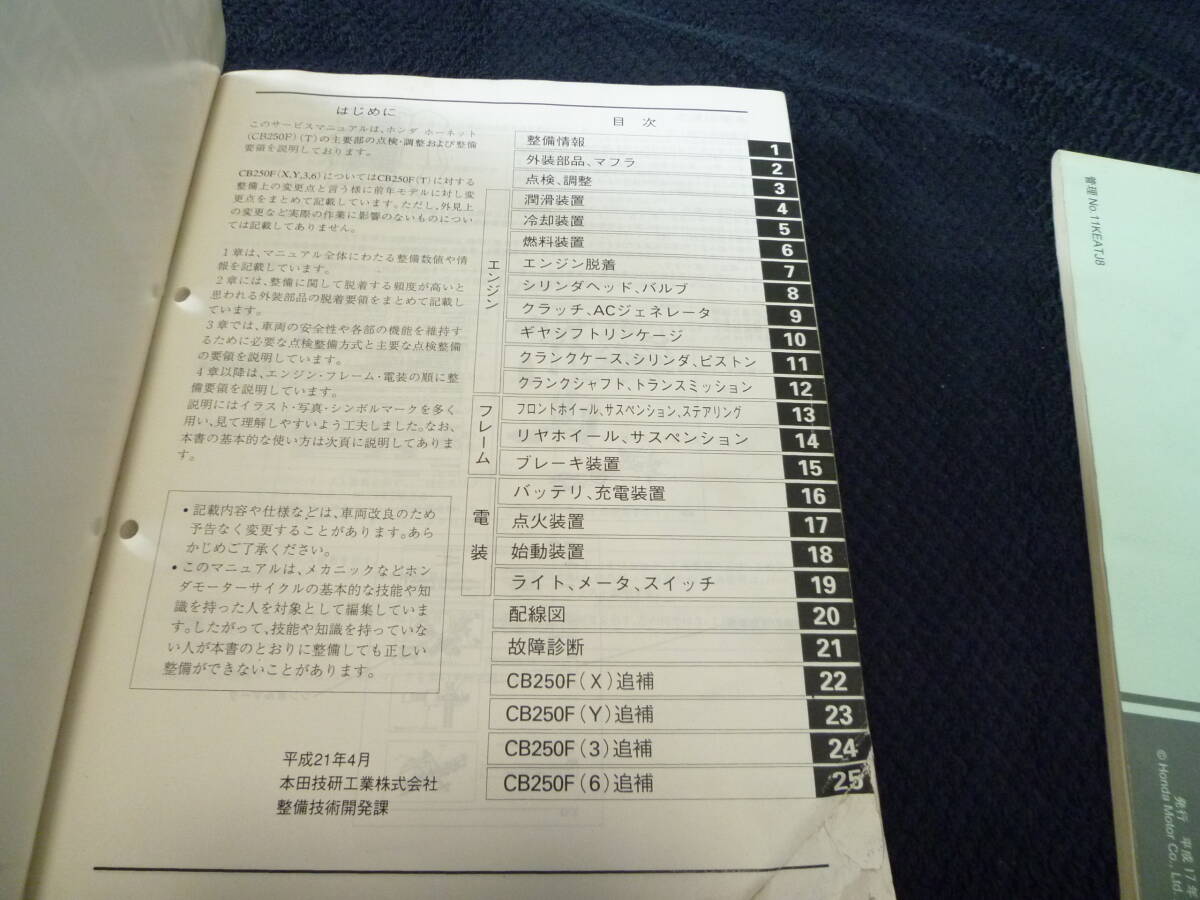 はじめに
このサービスマニュアルは、ホンダ ホーネット
(CB250F)(T)の主要部の点検・調整および整備
要領を説明しております。
CB250F(X,Y,3,6)についてはCB250F(T)に対する
整備上の変更点と言う様に前年モデルに対し変
更点をまとめて記載しています。ただし、外見上
の変更など実際の作業に影響のないものについ
ては記載してありません。
1章は、マニュアル全体にわたる整備数値や情
報を記載しています。
2章には、整備に関して脱着する頻度が高いと
思われる外装部品の脱着要領をまとめて記載し
ています。
3章では、車両の安全性や各部の機能を維持す
るために必要な点検整備方式と主要な点検整備
の要領を説明しています。
4章以降は、エンジン・フレーム・電装の順に整
備要領を説明しています。
説明にはイラスト・写真・シンボルマークを多く
用い、見て理解しやすいよう工夫しました。なお、
本書の基本的な使い方は次頁に説明してありま
す。
・記載内容や仕様などは、車両改良のため
予告なく変更することがあります。あら
かじめご了承ください。
・このマニュアルは、メカニックなどホン
ダモーターサイクルの基本的な技能や知
識を持った人を対象として編集していま
す。したがって、技能や知識を持っていな
い人が本書のとおりに整備しても正しい
整備ができないことがあります。
平成21年4月
本田技研工業株式会社
整備技術開発課
目 次
整備情報 1
外装部品、マフラ 2
点検、調整 3
エンジン
潤滑装置 4
冷却装置 5
燃料装置 6
エンジン脱着 7
シリンダヘッド、バルブ 8
クラッチ、ACジェネレータ 9
ギヤシフトリンケージ 10
クランクケース、シリンダ、ピストン 11
クランクシャフト、トランスミッション 12
フレーム
フロントホイール、サスペンション、ステアリング 13
リヤホイール、サスペンション 14
ブレーキ装置 15
電装
バッテリ、充電装置 16
点火装置 17
始動装置 18
ライト、メータ、スイッチ 19
配線図 20
故障診断 21
CB250F(X)追補 22
CB250F(Y)追補 23
CB250F(3)追補 24
CB250F(6)追補 25
管理 No.11KEATJ8
発行 平成17年
© Honda Motor Co., Ltd.